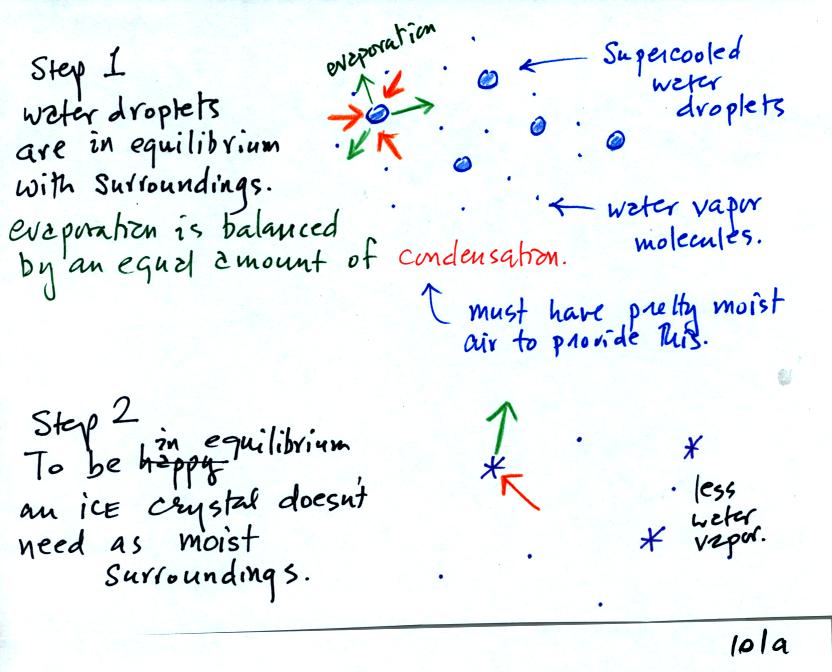 Step 1
water droplets
are in equilibrium
with surroundings.
evaporation is balanced
by an equal amount of condensation.
evaporation
Supercooled
water
droplets
water vapor
molecules.
must have pretty moist
air to provide this.
Step 2
To be happy in equilibrium
an ice crystal doesn't
need as moist
surroundings.
less
water
vapor.
101a